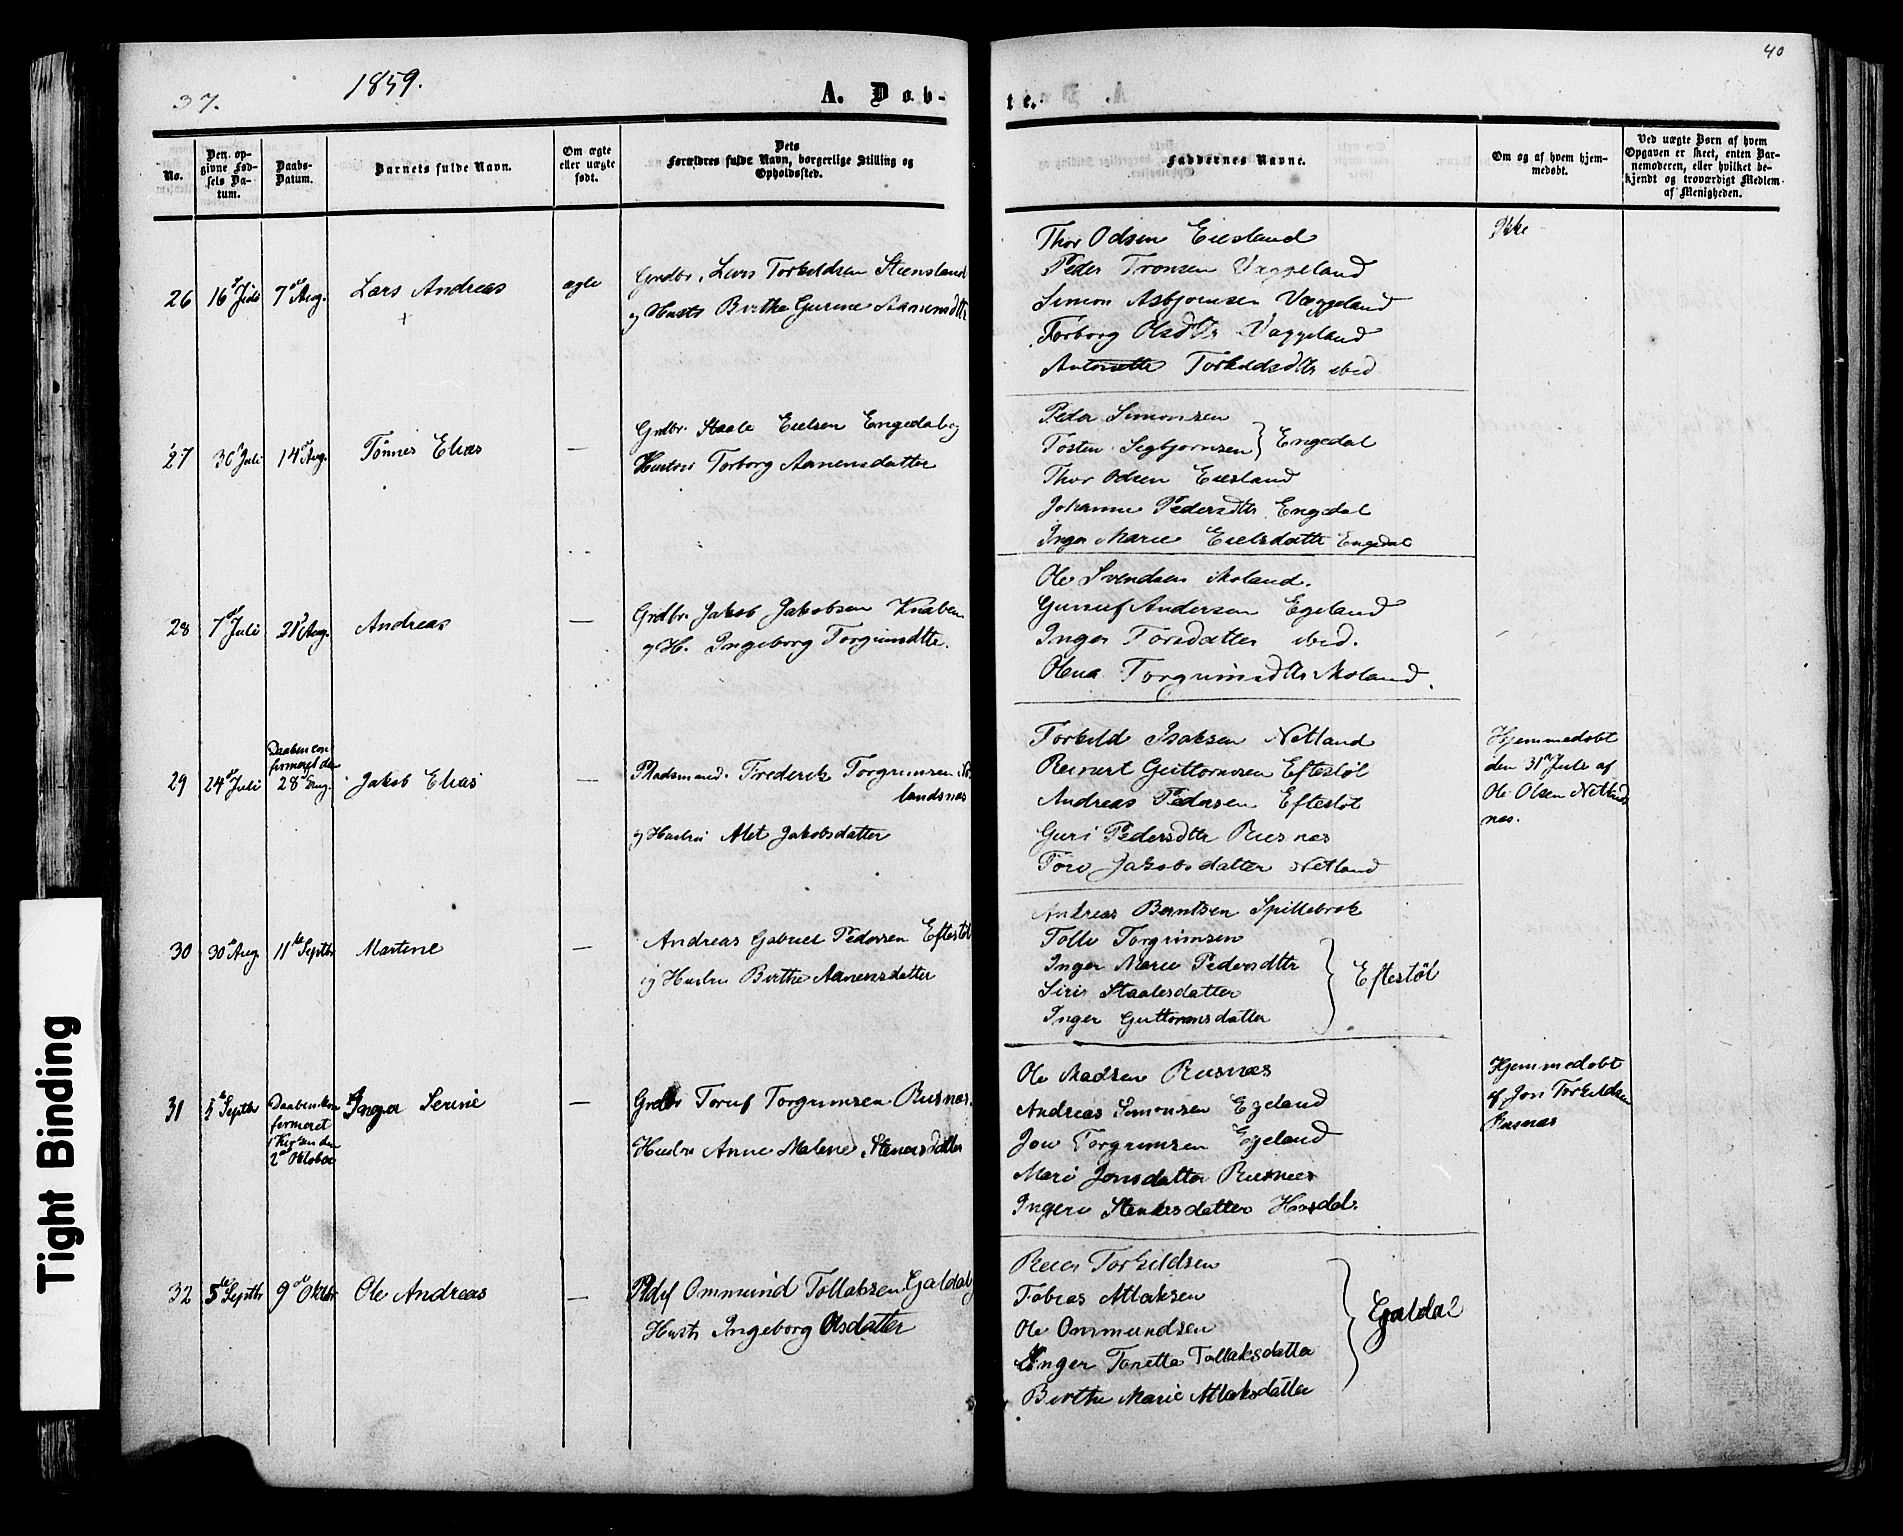 37.
1859.
A. Døb-
te.
40
No.
Den opgivne Fødsels Datum.
Daabs-Datum.
Barnets fulde Navn.
Om ægte eller uægte født.
Dets Forældres fulde Navn, borgerlige Stilling og Opholdssted.
Faddernes Navne.
Om og af hvem hjemmedøbt.
Ved uægte Børn af hvem Opgaven er skeet, enten Barnemoderen, eller hvilket bekjendt og troværdigt Medlem af Menigheden.
26 16de Juli 7de Aug. Lars Andreas ægte
Grdbr. Lars Torkildsen Stensland
og Hustr Birthe Gurine Aanensdttr
Thor Odsen Eiesland
Peder Tronsen Væggeland
Simon Asbjørnsen Væggeland
Torborg Olsdttr Væggeland
Antonette Torkildsdttr ibid
Ikke
27 30 Juli 14de Aug. Tønnes Elias —
Grdbr. Staale Eielsen Engedal og
Hustru Torborg Aanensdatter
Peder Simonsen
Tosten Segbjørnsen } Engedal
Thor Odsen Eiesland
Johanne Pedersdttr Engedal
Inger Marie Eielsdatter Engedal
28 7de Juli 21d Aug. Andreas —
Grdbr. Jakob Jakobsen Knaben
og H. Ingeborg Torgrimsdtte.
Ole Svendsen Moland.
Gunuf Andersen Egeland
Inger Torsdatter ibid.
Olena Torgrimsdttr Moland.
29 24de Juli Daaben confirmeret den 28de Aug. Jakob Elias —
Pladsmand. Frederik Torgrimsen
landsnæs
og Hustru Alet Jakobsdatter
Torkild Isaksen Netland
Reinert Guttormsen Eftestøl
Andreas Pedersen Eftestøl
Guri Pedersdttr Rusnæs
Toro Jakobsdatter Netland
Hjemmedøbt
den 31te Juli af
Ole Olsen Netlands
næs.
30 30de Aug. 11te Septbr Martine —
Andreas Gabriel Pedersen Eftestøl
og Hustru Birthe Aanensdatter
Andreas Berntsen Spillebrok
Tollo Torgrimsen
Inger Marie Pedersdttr
Siri Staalesdatter } Eftestøl
Inger Guttormsdatter
31 5te Septbr Daaben konfirmeret i Kirken den 2den Oktober Inger Serine —
Grdbr Toruf Torgrimsen Rusnæs.
Hustru Anne Malene Stenersdatter
Ole Madsen Rusnæs
Andreas Simonsen Egeland
Jon Torgrimsen Egeland
Mari Jonsdatter Rusnæs
Ingeri Stenersdatter
Hjemmedøbt
af Jon Torkildsen
Rusnæs
32 5te Septbr 9de Oktbr Ole Andreas —
Ommund Tollaksen Galdal og
Hustr Ingeborg Olsdatter
Reier Torkildsen
Tobias Atlaksen
Ole Ommundsen } Galdal
Inger Tonette Tollaksdatter
Birthe Marie Atlaksdatter
Tight Binding